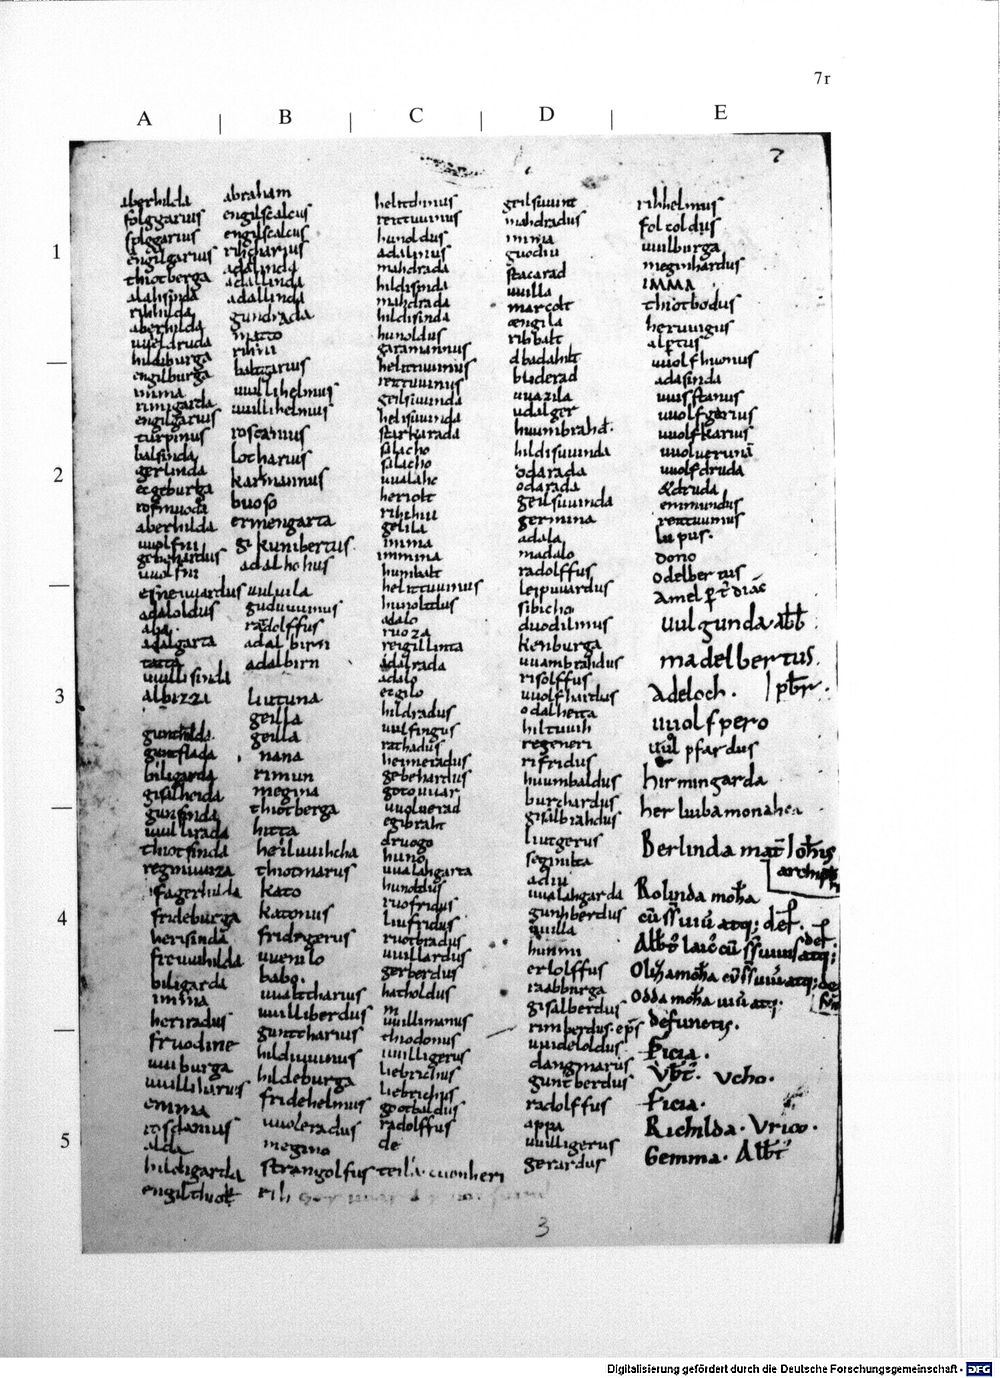 7r
A B C D E
7
1
2
3
4
5
aberhilda
folggarius
folggarius
engilgarius
thiotberga
alahsinda
rihhilda
aberhilda
uueldruda
hildiburga
engilburga
imma
rimigarda
engilgarius
turpinus
balsinda
gerlinda
ecgeburga
rosmuoda
aberhilda
uuolfni
gebehardus
uuolfni
esneuuardus
adaloldus
aba.
adalgarta
tatta
uuillisinda
albizzi
gunthilda.
guntflada
biligarda
gisalheida
gunsinda
uuillirada
thiotsinda
reginuuiza
fagerhilda
frideburga
herisinda
freuuihilda
biligarda
imma
heriradus
fruodine
uuiburga
uuilliharius
emma
rosdamus
alda
hildigarda
engilthiok
abraham
engilscalcus
engilscalcus
rihcharius
adalinda
adallinda
adallinda
gundrada
matto
rihni
baltarius
uuillihelmus
uuillihelmus
rostamus
lotharius
karlmannus
buoso
ermengarta
gikunibertus.
adalhohus
uuluila
guduuinus
radolffus
adalbirn
adalbirn
liutuna
geilla
geilla
nana
rimun
megina
thiotberga
hitta
heiluuihcha
thiotmarus
kato
katonus
fridigerus
uuenilo
babo.
uualtharius
uuilliberdus
guntharius
hildiuuinus
hildeburga
fridehelmus
uuoleradus
megino
strangolfus teila. cuonheri
rih
heltdinus
rentuuinus
hunoldus
adalinus
mahdrada
hildisinda
mahdrada
hildisinda
hunoldus
garamannus
heltuuinus
rentuuinus
geilsuuinda
helisuuinda
starkarada
silacho
silacho
uualahc
heriolt
rihihu
gelila
imma
immina
humbalt
heltuuinus
hunoldus
adalo
ruoza
reigillinta
adalrada
adalo
ercilo
hildradus
uulfingus
rathadus
heimeradus
gebehardus
gotouuar
uuoluerad
egibraht
druogo
huno
uualahgarta
hunoldus
ruofridus
liufridus
ruotbradus
uuillardus
gerberdus
hatholdus
m
uuillimanus
thiodonus
uuilligerus
liebrichus
liebrichus
gootbaldus
radolffus
de
geilsuuint
mahdradus
imma
guodiu
stacarad
uuilla
marcolt
oengila
rihbalt
dbadahilt
bliderad
uuazila
udalger
huumbrahd.
hildisuuinda
odarada
odarada
geilsuuinda
germina
adala
madalo
radolffus
leipuuardus
sibicho
duodilinus
kenburga
uuambrahdus
risolffus
uuolfhardus
odalheita
hiltuuih
regeneri
rifridus
huumbaldus
burchardus
gisilbrahdus
liutgerus
seginilta
adiu
uualahgarda
gunhberdus
uuilla
humni
erlolffus
raabburga
gisalberdus
rimberdus. eps
uuideloldus
dangmarus
guntberdus
radolffus
appa
uuilligerus
gerardus
rihhelmus
foltoldus
uuilburga
meginhardus
IMMA
thiotbodus
heruuigus
alptus
uuolfhuonus
adasinda
uuisstanus
uuolfgerius
uuolfkarius
uuoluerunā
uuolfdruda
&druda
emmundus
rentuuinus
lupus.
dono
odelbertus
Uulgunda. abb.
madelbertus.
Adeloch. | pbr.
uuolfpero
hirmingarda
Berlinda mat
Rolinda moha
defunctis.
Ficia.
Vbt. Vcho.
Ficia.
Richilda. Vrico.
Gemma. Albt
3
Digitalisierung gefördert durch die Deutsche Forschungsgemeinschaft - DFG